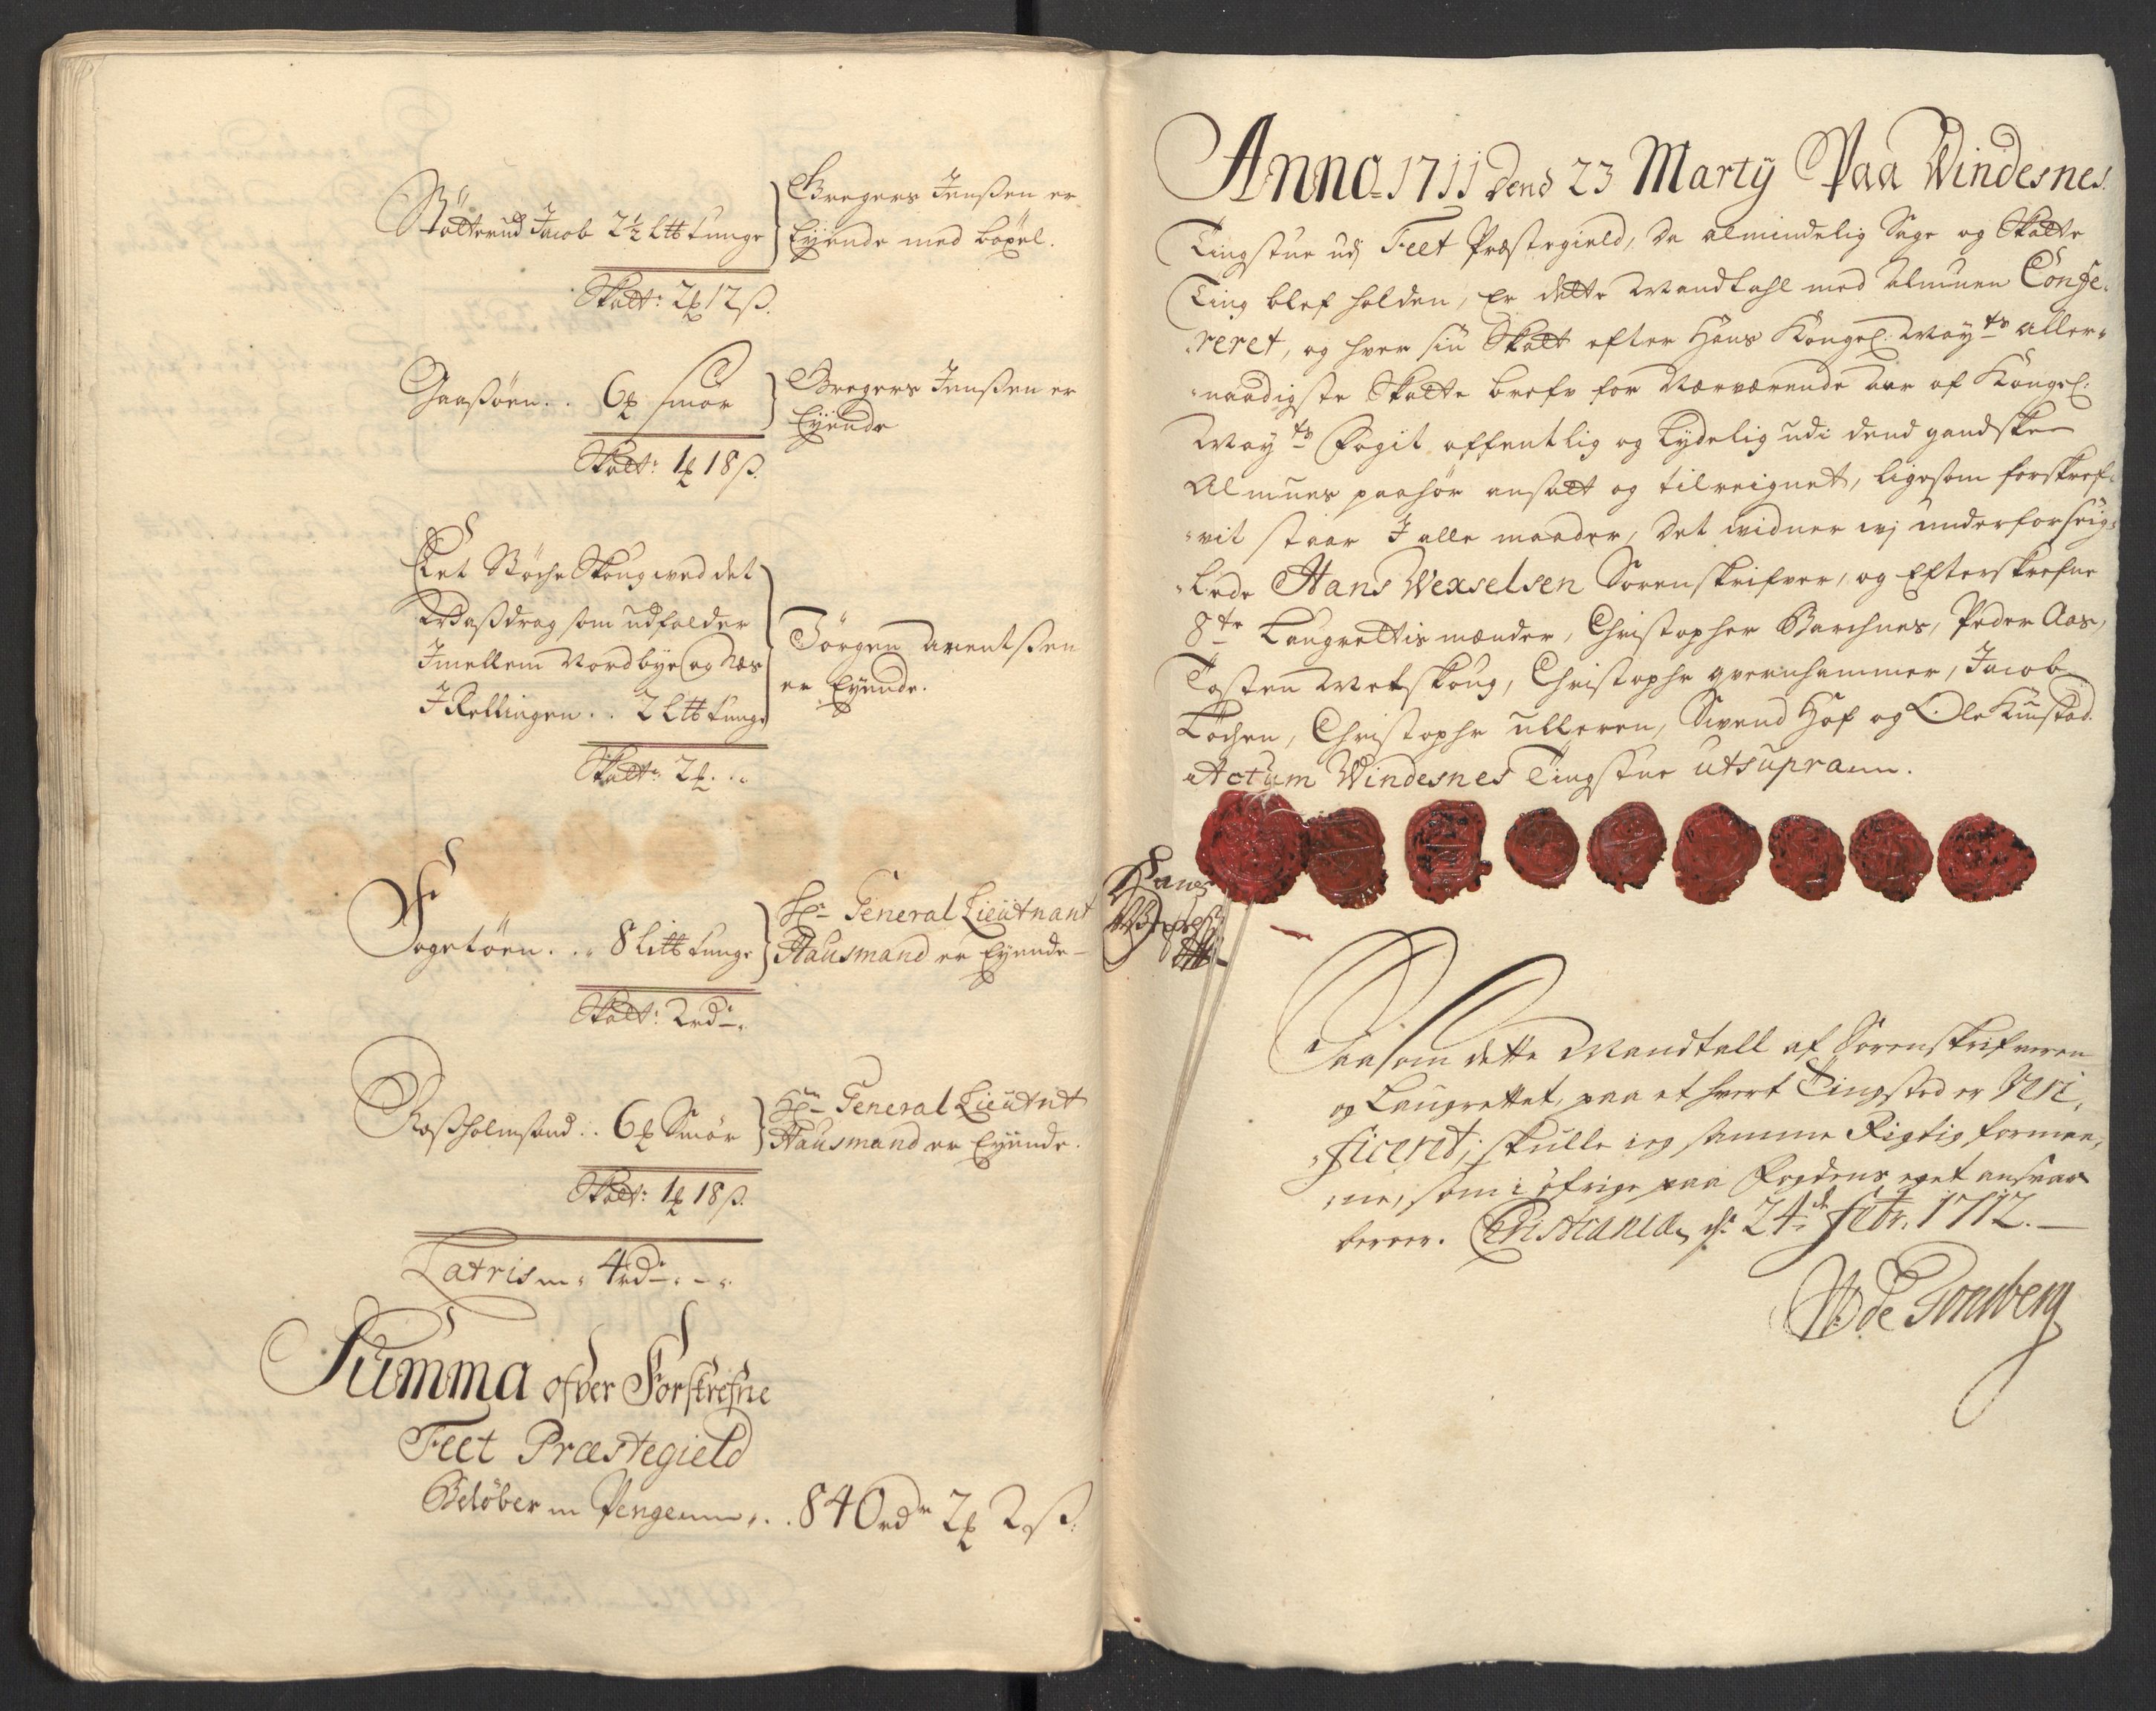 Støtterud Jacob 2½ Ltt tunge
Gregers Jenßen er
Eÿende med bøxel.
Skatt: 2 12 ß.
Gaasøen . . 6 smör
Gregers Jenßen er
Eÿende
Skatt: 1 18 ß.
Eet Støche Skoug ved det
Waßdrag som udfalder
Jmellem Nordbye og Næs
J Rellingen . . 2 Ltt tunge
Jörgen Arentßen
er Eÿende.
Skatt: 2
Fogetöen . . 8 Litt tunge
Hr General Lieutnant
Hausmand er Eÿende
Skatt: 2 rdr
Roßholmsund . . 6 Smör
Hr General Lieutnt
Hausmand er Eÿende.
Skatt: 1 18 ß.
Latris 4 rdr
Summa ofver Forskrefne
Feet Præstegield
Beløber Penge . . 840 rdr 2 2 ß.
Anno 1711 dend 23 Martÿ Paa Windesnes
Tingstue udj Feet Præstegield, da almindelig Sage og Skatte
Ting blef holden, Er dette Mandtahl med Almuen Confe-
reret, og hver sin Skatt efter Hans Kongel: Maÿts aller-
naadigste Skatte brefv for Nærværende Aar af Kongel:
Maÿts Fogit offentlig og Tydelig udi dend gandske
Almues paahør ansatt og tilreignet, ligesom forskref-
vit staar J alle maader, det vidner vj underforseig-
lede Hans Wexselsen Sorenskrifver, og Efterskrefne
8te Laugrettis mænder, Christopher Barchnes, Peder Aas,
Tosten Melskoug, Christopher qvernhammer, Jacob
Löchen, Christopher ulleren, Svend Hof og Ole Kinstad.
Actum Windesnes Tingstue utsupra.
Hans
Saasom dette Mandtall af Sorenskrifveren
og Laugrettet, paa et hvert Tingsted er Veri-
ficeret, skulle ieg samme Rigtig formee-
ne, som i öfrige paa Fogdens eget ansvar
beroer. Christiania d: 24de Febr. 1712.
W: de Tonsberg